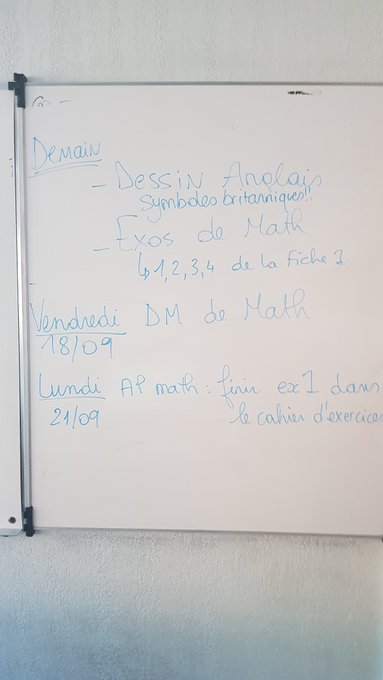 Demain
- Dessin Anglais
Symboles britanniques!!
- Exos de Math
↳ 1, 2, 3, 4 de la fiche 1
Vendredi DM de Math
18/09
Lundi AP math : finir ex 1 dans
21/09 le cahier d'exercices